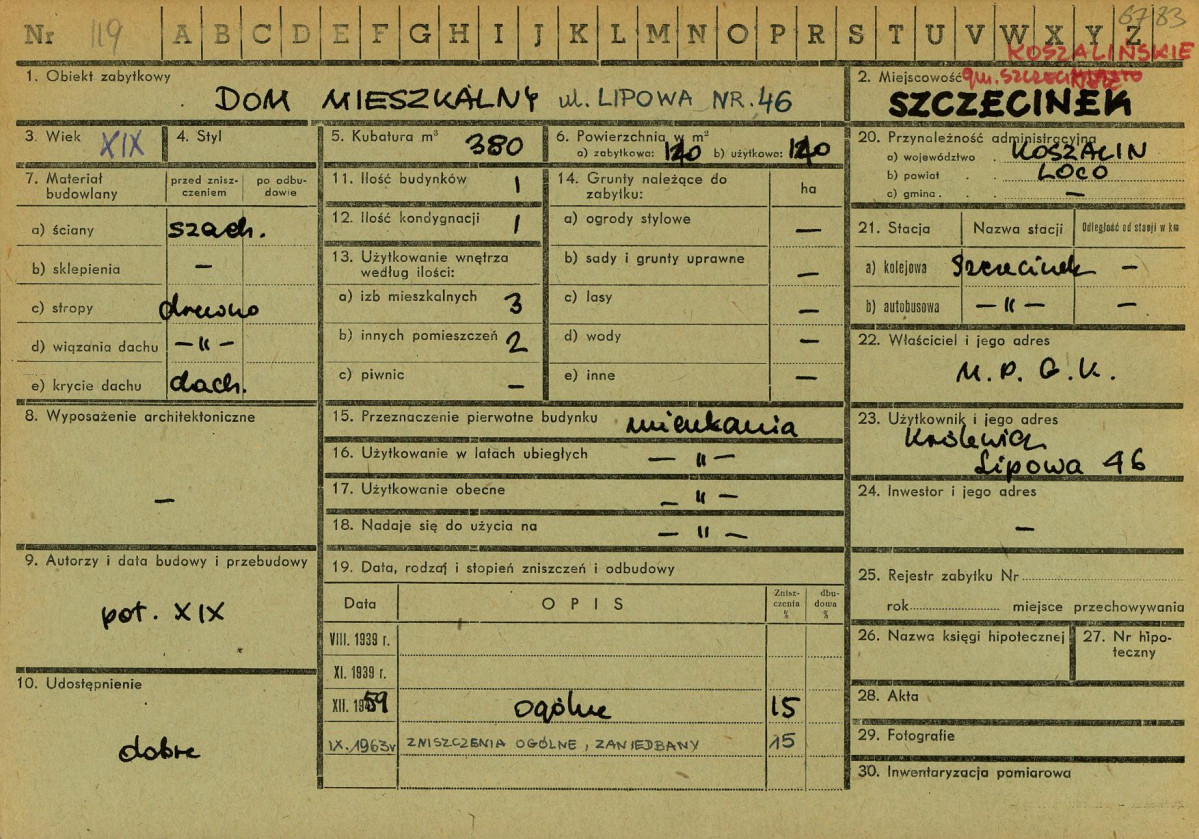 Nr 119 A B C D E F G H I J K L M N O P R S T U V W X Y Z 6783
KOSZALIŃSKIE
1. Obiekt zabytkowy
DOM MIESZKALNY ul. LIPOWA NR. 46
2. Miejscowość gm.
SZCZECINEK
3. Wiek XIX
4. Styl
5. Kubatura m³ 380
6. Powierzchnia w m²
a) zabytkowa: b) użytkowa:
20. Przynależność administracyjna
a) województwo . KOSZALIN
b) powiat . . LOCO
c) gmina . . —
7. Materiał budowlany
przed zniszczeniem
po odbudowie
a) ściany szach.
b) sklepienia —
c) stropy drewno
d) wiązania dachu — " —
e) krycie dachu dach.
11. Ilość budynków 1
12. Ilość kondygnacji 1
13. Użytkowanie wnętrza według ilości:
a) izb mieszkalnych 3
b) innych pomieszczeń 2
c) piwnic —
14. Grunty należące do zabytku:
ha
a) ogrody stylowe —
b) sady i grunty uprawne —
c) lasy —
d) wody —
e) inne —
21. Stacja
Nazwa stacji
Odległość od stacji w km
a) kolejowa Szczecinek —
b) autobusowa — " — —
22. Właściciel i jego adres
M. P. G. K.
8. Wyposażenie architektoniczne
—
15. Przeznaczenie pierwotne budynku mieszkania
16. Użytkowanie w latach ubiegłych — " —
17. Użytkowanie obecne — " —
18. Nadaje się do użycia na — " —
23. Użytkownik i jego adres
Lipowa 46
24. Inwestor i jego adres
—
9. Autorzy i data budowy i przebudowy
poł. XIX
10. Udostępnienie
dobre
19. Data, rodzaj i stopień zniszczeń i odbudowy
Data
OPIS
Zniszczenia %
dbudowa %
VIII. 1939 r.
XI. 1939 r.
XII. 1959 ogólne 15
IX. 1963r ZNISZCZENIA OGÓLNE, ZANIEDBANY 15
25. Rejestr zabytku Nr
rok miejsce przechowywania
26. Nazwa księgi hipotecznej
27. Nr hipoteczny
28. Akta
29. Fotografie
30. Inwentaryzacja pomiarowa